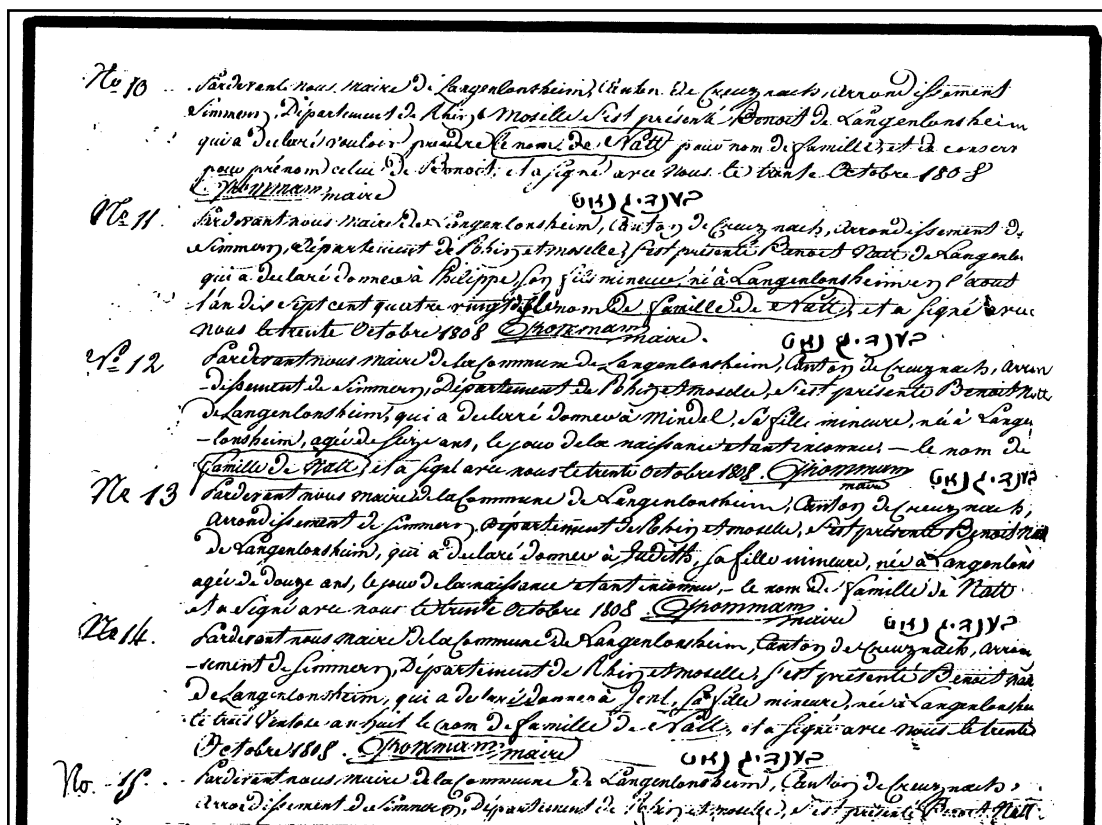 No 10 Pardevant nous maire de Langenlonsheim, Canton de Creuznach, arrondissement
Simmern, Département de Rhin & Moselle s'est présenté Benoit de Langenlonsheim
qui a declaré vouloir prendre le nom de Natt pour nom de famille et de conserv
pour prénom celui de Benoit, et a signé avec nous le trente Octobre 1808
maire
בענדיג נאט
No 11. Pardevant nous maire de Langenlonsheim, Canton de Creuznach, arrondissement de
Simmern, département de Rhin et moselle, s'est présenté Benoit Natt de Langenlo
qui a declaré donner à Philippe, son fils mineur, né à Langenlonsheim en l'aout
l'an dix sept cent quatre vingt le nom de famille de Natt, et a signé avec
nous le trente Octobre 1808 maire.
בענדיג נאט
No 12 Pardevant nous maire de la Commune de Langenlonsheim, Canton de Creuznach, arron
-dissement de Simmern, Département de Rhin et moselle, s'est présenté Benoit Natt
de Langenlonsheim, qui a declarré donner à Mindel, sa fille mineure, née à Langen
-lonsheim, agée de seize ans, le jour de la naissance etant inconnu, — le nom de
famille de Natt, et a signé avec nous le trente Octobre 1808. maire
בענדיג נאט
No 13 Pardevant nous maire de la Commune de Langenlonsheim, Canton de Creuznach,
arrondissement de Simmern, Département de Rhin et moselle, s'est présenté Benoit Natt
de Langenlonsheim, qui a declaré donner à Judith, sa fille mineure, née à Langenlons
agée de douze ans, le jour de la naissance etant inconnu, – le nom de famille de Natt
et a signé avec nous le trente Octobre 1808. maire
בענדיג נאט
No 14. Pardevant nous maire de la Commune de Langenlonsheim, Canton de Creuznach, arron
-sement de Simmern, Département de Rhin et moselle, s'est présenté Benoit Natt
de Langenlonsheim, qui a declaré donner à Jenl, sa fille mineure, née à Langenlonshe
le trois Ventose an huit le nom de famille de Natt, et a signé avec nous le trente
Octobre 1808. maire
בענדיג נאט
No. 15. Pardevant nous maire de la Commune de Langenlonsheim, Canton de Creuznach,
arrondissement de Simmern, département de Rhin et moselle, s'est présenté Benoit Natt